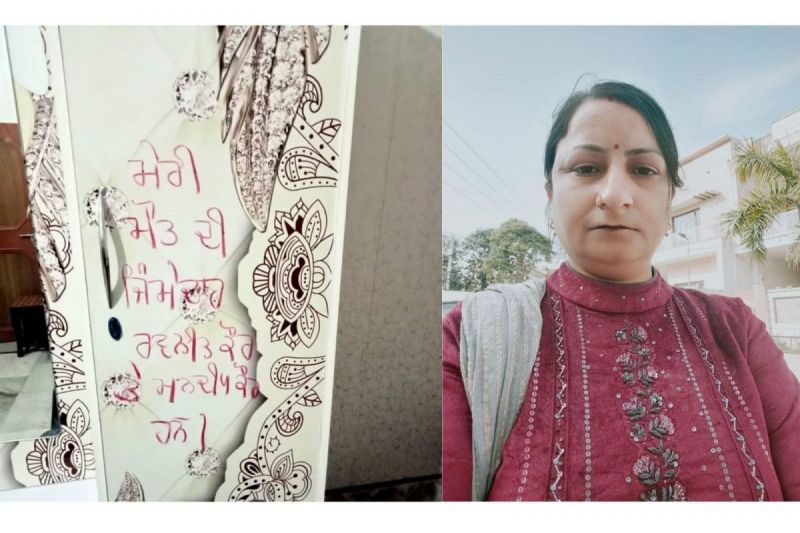 ਮੇਰੀ
ਮੌਤ ਦੀ
ਜਿੰਮੇਵਾਰ
ਰਵਨੀਤ ਕੌਰ
ਤੇ ਮਨਦੀਪ ਕੌਰ
ਹਨ।